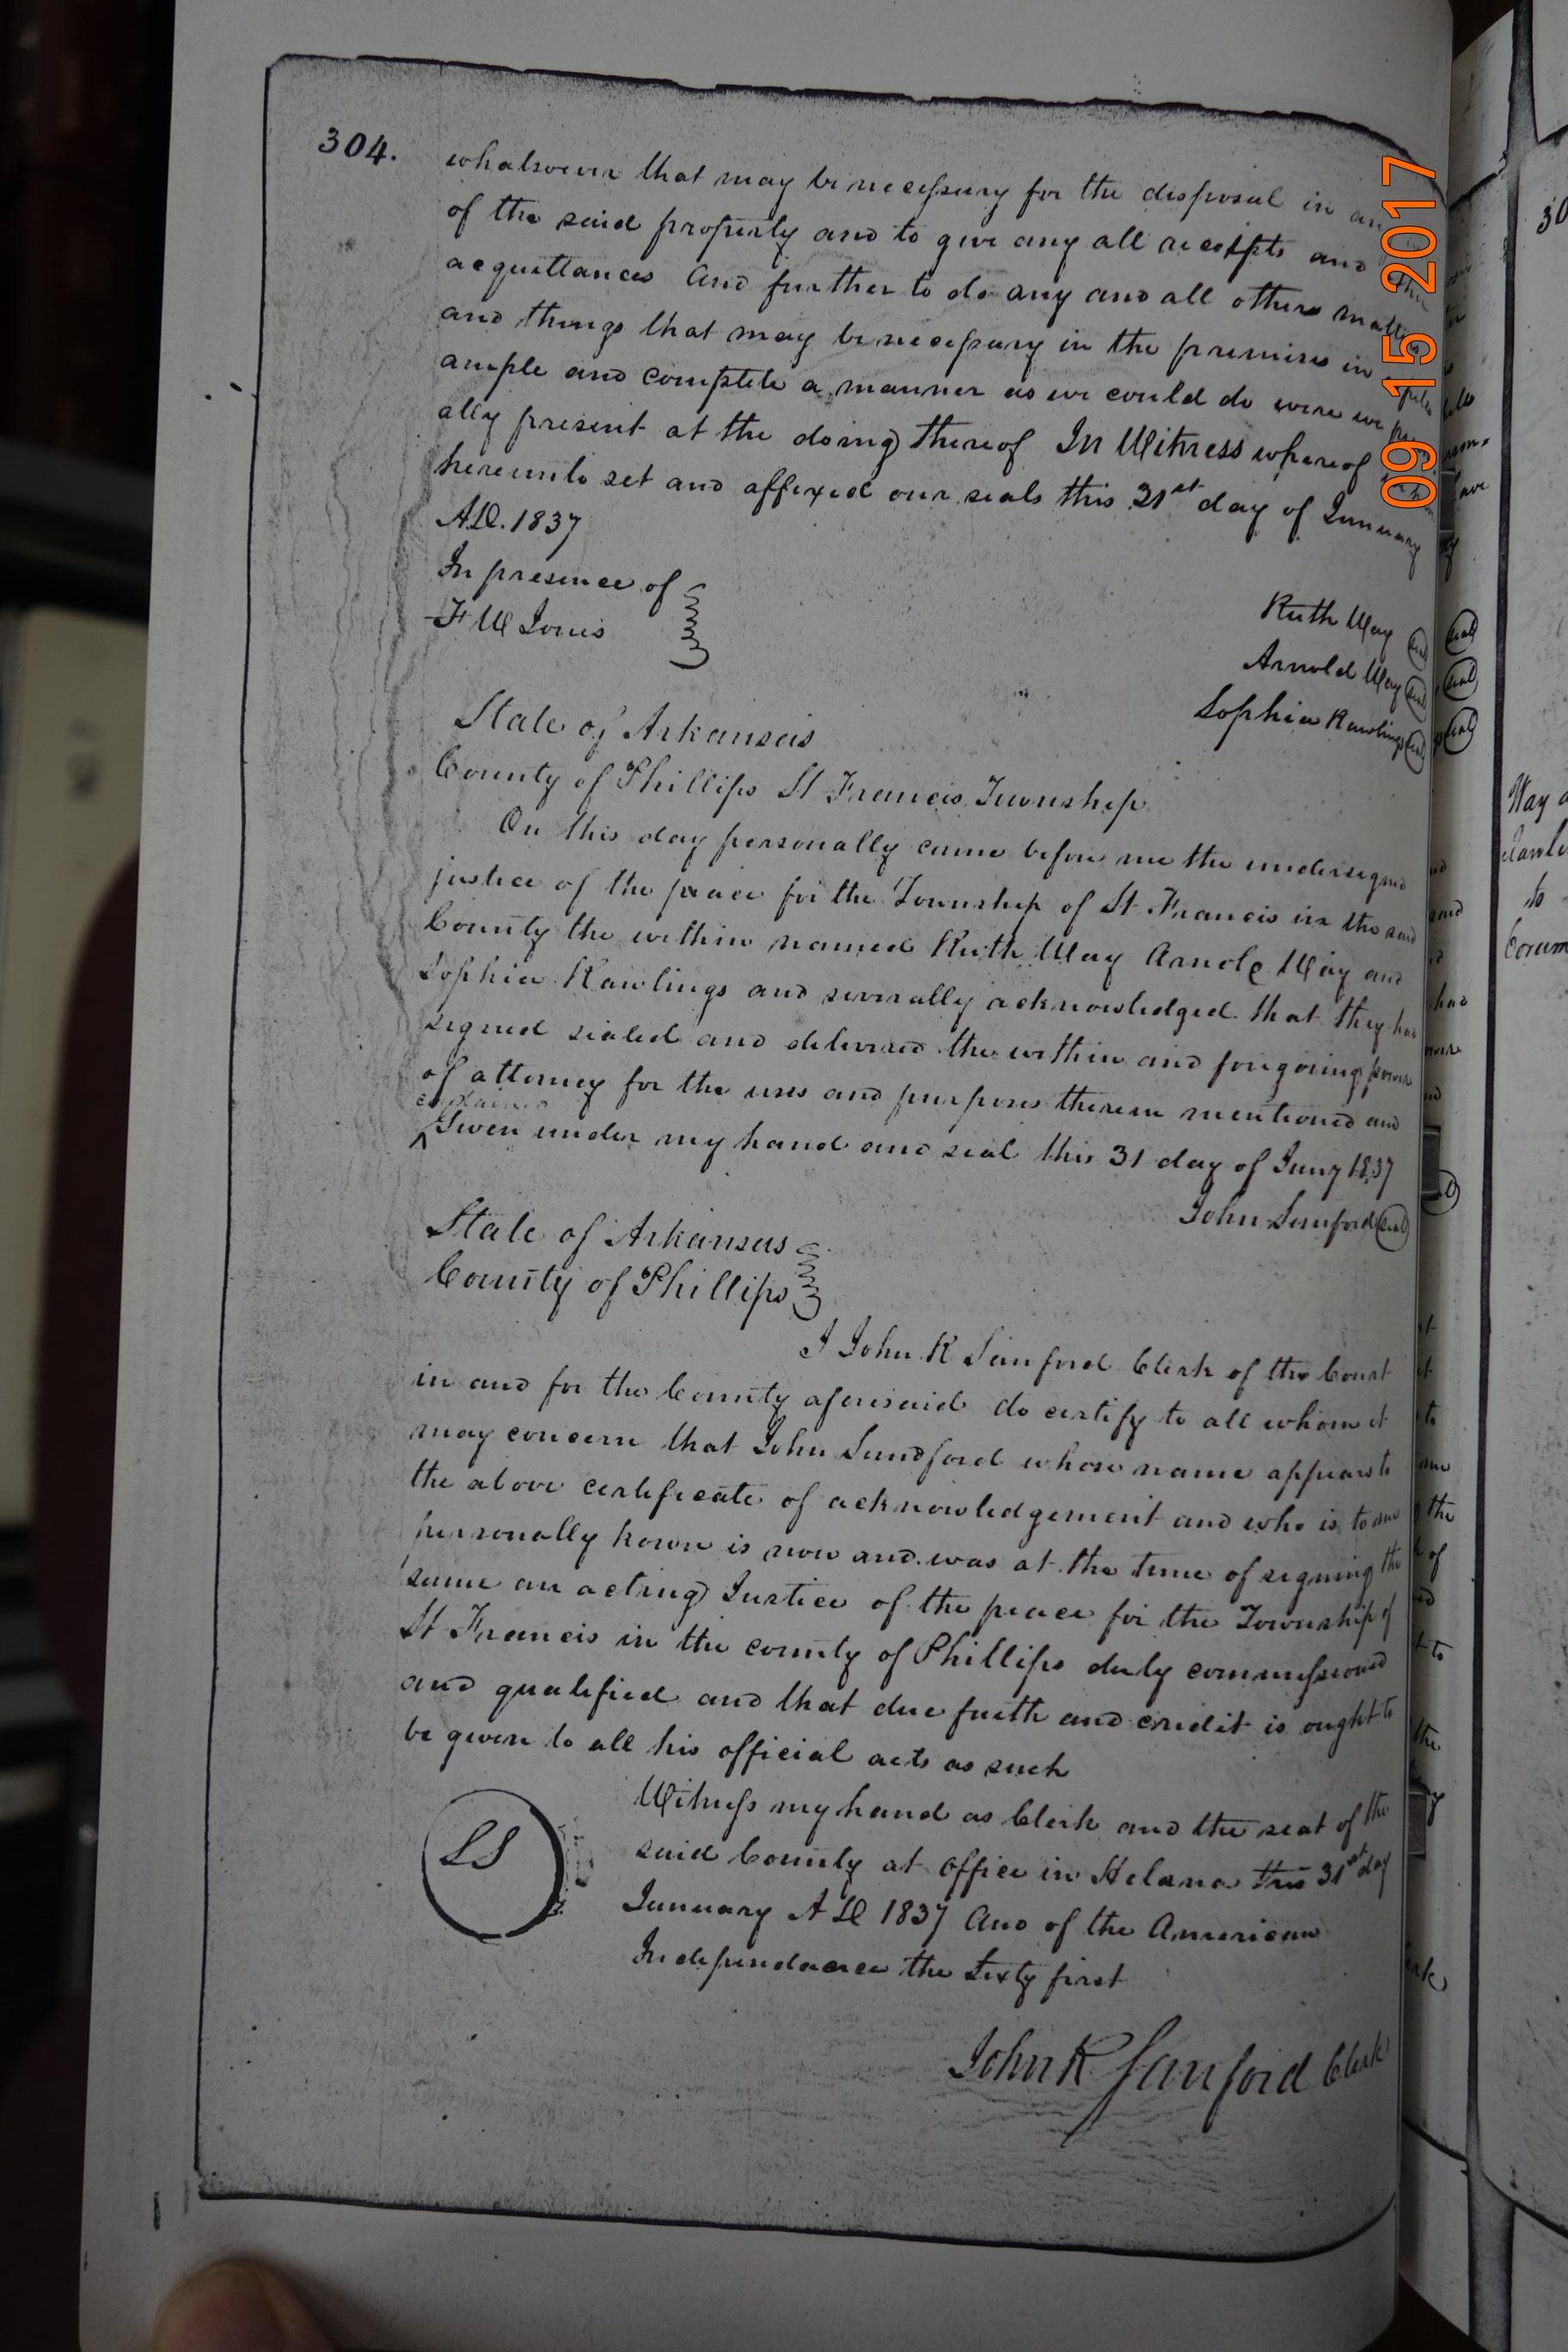 304.
whatsoever that may be necessary for the disposal in
of the said property and to give any all receipts and
acquittances And further to do any and all others
and things that may be necessary in the premises in
ample and complete a manner as we could do were we
ally present at the doing thereof In Witness whereof
hereunto set and affixed our seals this 31st day of January
A.D. 1837
In presence of
F W Jones
Ruth Way seal
Arnold Way seal
Sophia Rawlings seal
State of Arkansas
County of Phillips St Francis Township
On this day personally came before me the undersigned
justice of the peace for the Township of St Francis in the said
County the within named Ruth Way Arnold Way and
Sophia Rawlings and severally acknowledged that they had
signed sealed and delivered the within and foregoing power
of attorney for the uses and purposes therein mentioned and
explained
^ Given under my hand and seal this 31 day of Jany 1837
John Sanford seal
State of Arkansas
County of Phillips
I John R Sanford Clerk of the Court
in and for the County aforesaid do certify to all whom it
may concern that John Sandford whose name appears to
the above certificate of acknowledgement and who is to me
personally known is now and was at the time of signing the
same an acting Justice of the peace for the Township of
St Francis in the county of Phillips duly commissioned
and qualified and that due faith and credit is ought to
be given to all his official acts as such
Witness my hand as Clerk and the seal of the
said County at office in Helena this 31st day
January A D 1837 And of the American
Independence the Sixty first
LS
John R Sanford Clerk
09 15 2017
30
Way
to